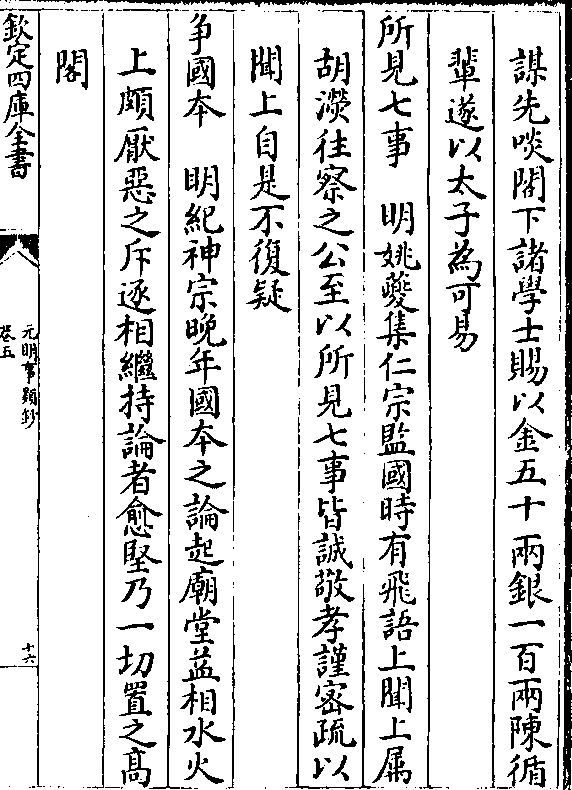 謀先啖閣下諸學士賜以金五十兩銀一百兩陳循
輩遂以太子為可易
所見七事　明姚夔集仁宗監國時有飛語上聞上屬
胡濙往察之公至以所見七事皆誠敬孝謹密疏以
聞上自是不復疑
争國本　明紀神宗晚年國本之論起廟堂益相水火
上頗厭惡之斥逐相繼持論者愈堅乃一切置之髙
閣
欽定四庫全書
元明事類鈔
卷五
十六